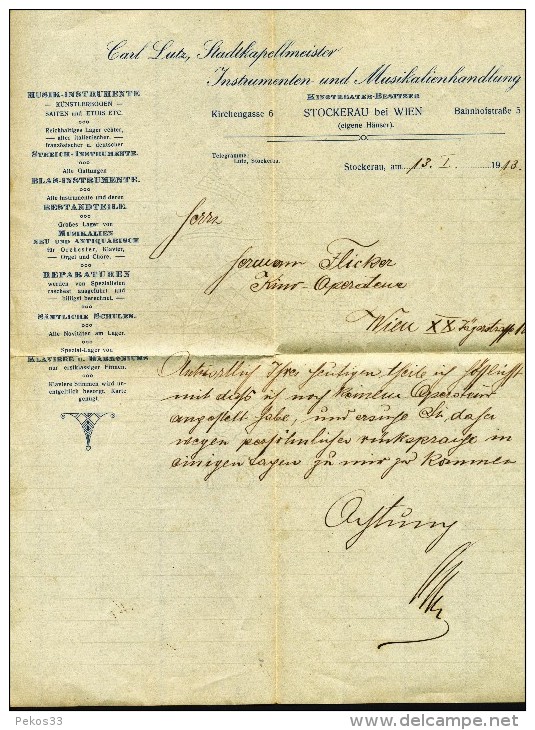 Carl Lutz, Stadtkapellmeister
Instrumenten und Musikalienhandlung
KINOTHEATER-BESITZER
Kirchengasse 6 STOCKERAU bei WIEN Bahnhofstraße 5
(eigene Häuser).
Telegramme:
Lutz, Stockerau.
Stockerau, am 13. I. 1913.
MUSIK-INSTRUMENTE
— KÜNSTLERBOGEN —
SAITEN und ETUIS ETC.
Reichhaltiges Lager echter,
— alter italienischer, —
französischer u. deutscher
STREICH-INSTRUMENTE.
Alle Gattungen
BLAS-INSTRUMENTE.
Alle Instrumente und deren
BESTANDTEILE.
Großes Lager von
MUSIKALIEN
NEU UND ANTIQUARISCH
für Orchester, Klavier,
— Orgel und Chöre. —
REPARATUREN
werden von Spezialisten
raschest ausgeführt und
billigst berechnet. —
SÄMTLICHE SCHULEN.
Alle Novitäten am Lager.
Spezial-Lager von
KLAVIERE u. HARMONIUMS
nur erstklassiger Firmen.
Klaviere stimmen wird un-
entgeltlich besorgt. Karte
genügt.
Herrn
Hermann Flicker
Kino-Operateur
Wien XX Jägerstrasse
Antwortlich Ihres heutigen theile ich höflichst
mit dass ich noch keinen Operateur
angestelt habe, und ersuche Sie, daher
wegen persöhnlicher rücksprache in
einigen tagen zu mir zu kommen
Achtung
Pekos33
www.delcampe.net